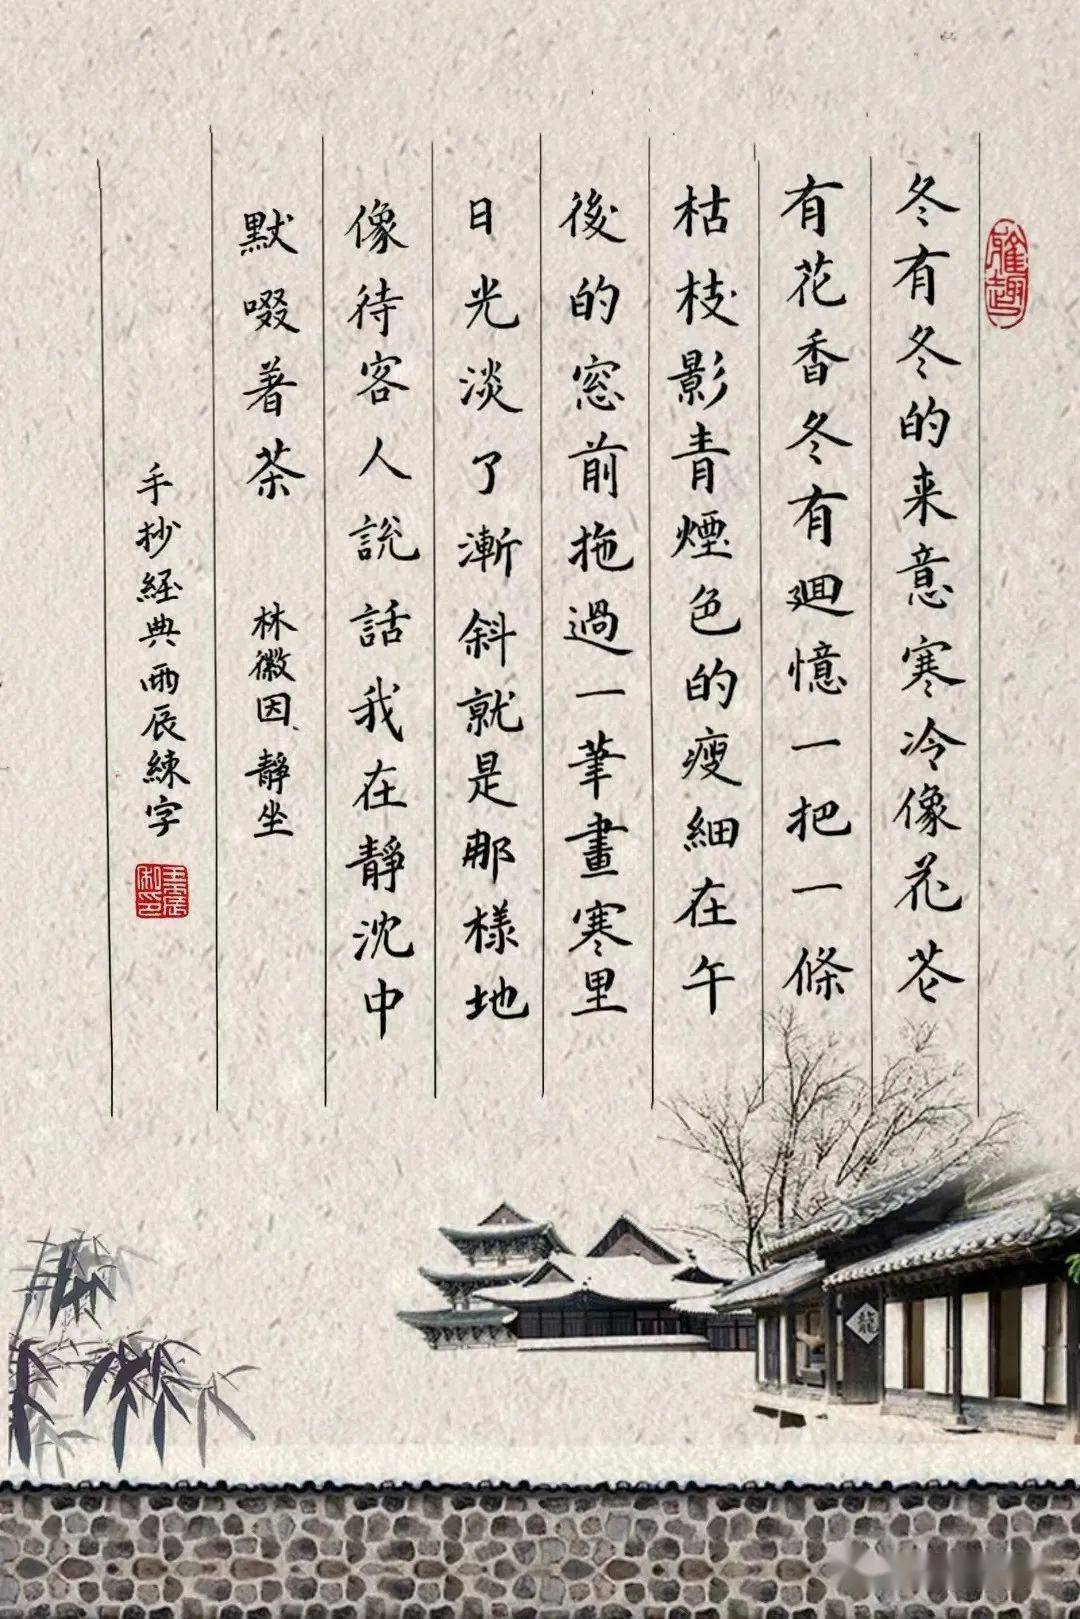 雅趣
冬有冬的来意寒冷像花花
有花香冬有廻憶一把一條
枯枝影青煙色的瘦細在午
後的窓前拖過一筆畫寒里
日光淡了漸斜就是那樣地
像待客人說話我在靜沈中
默啜著茶 林徽因、靜坐
手抄經典丙辰練字
龍